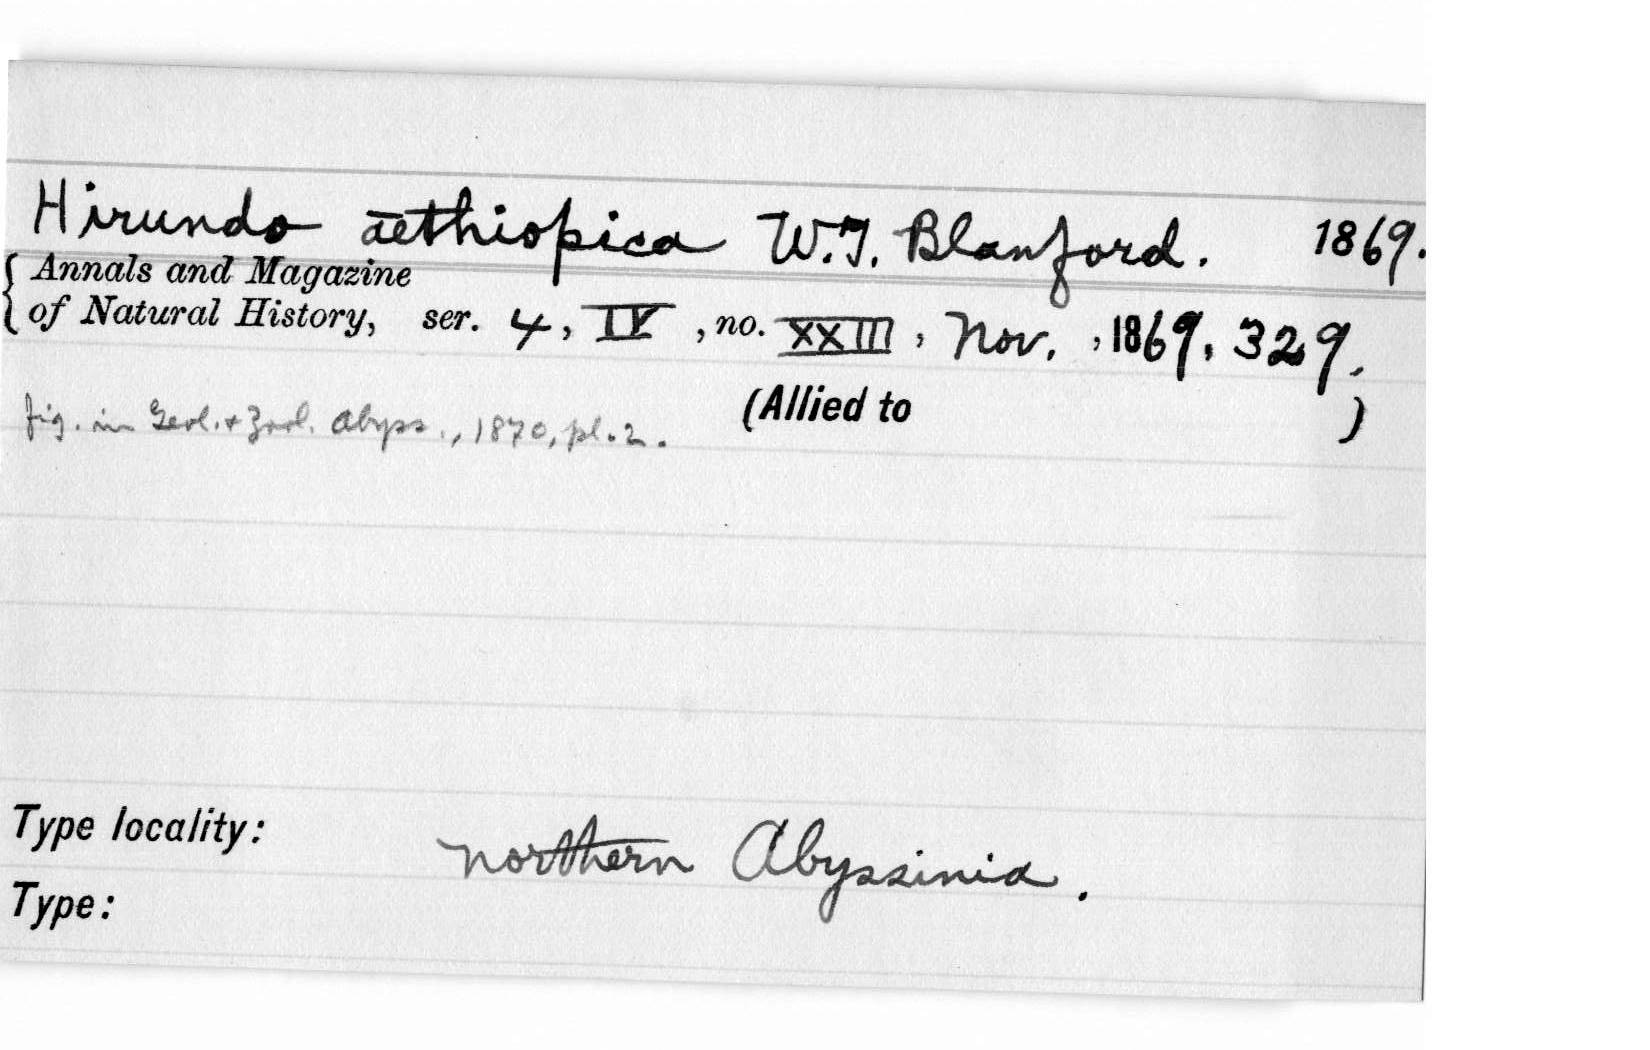 Hirundo aethiopica W.T. Blanford. 1869.
Annals and Magazine
of Natural History, ser. 4, IV, no. XXIII, Nov., 1869, 329.
(Allied to )
fig. in Geol. + Zool. Abyss., 1870, pl. 2.
Type locality: northern Abyssinia.
Type: